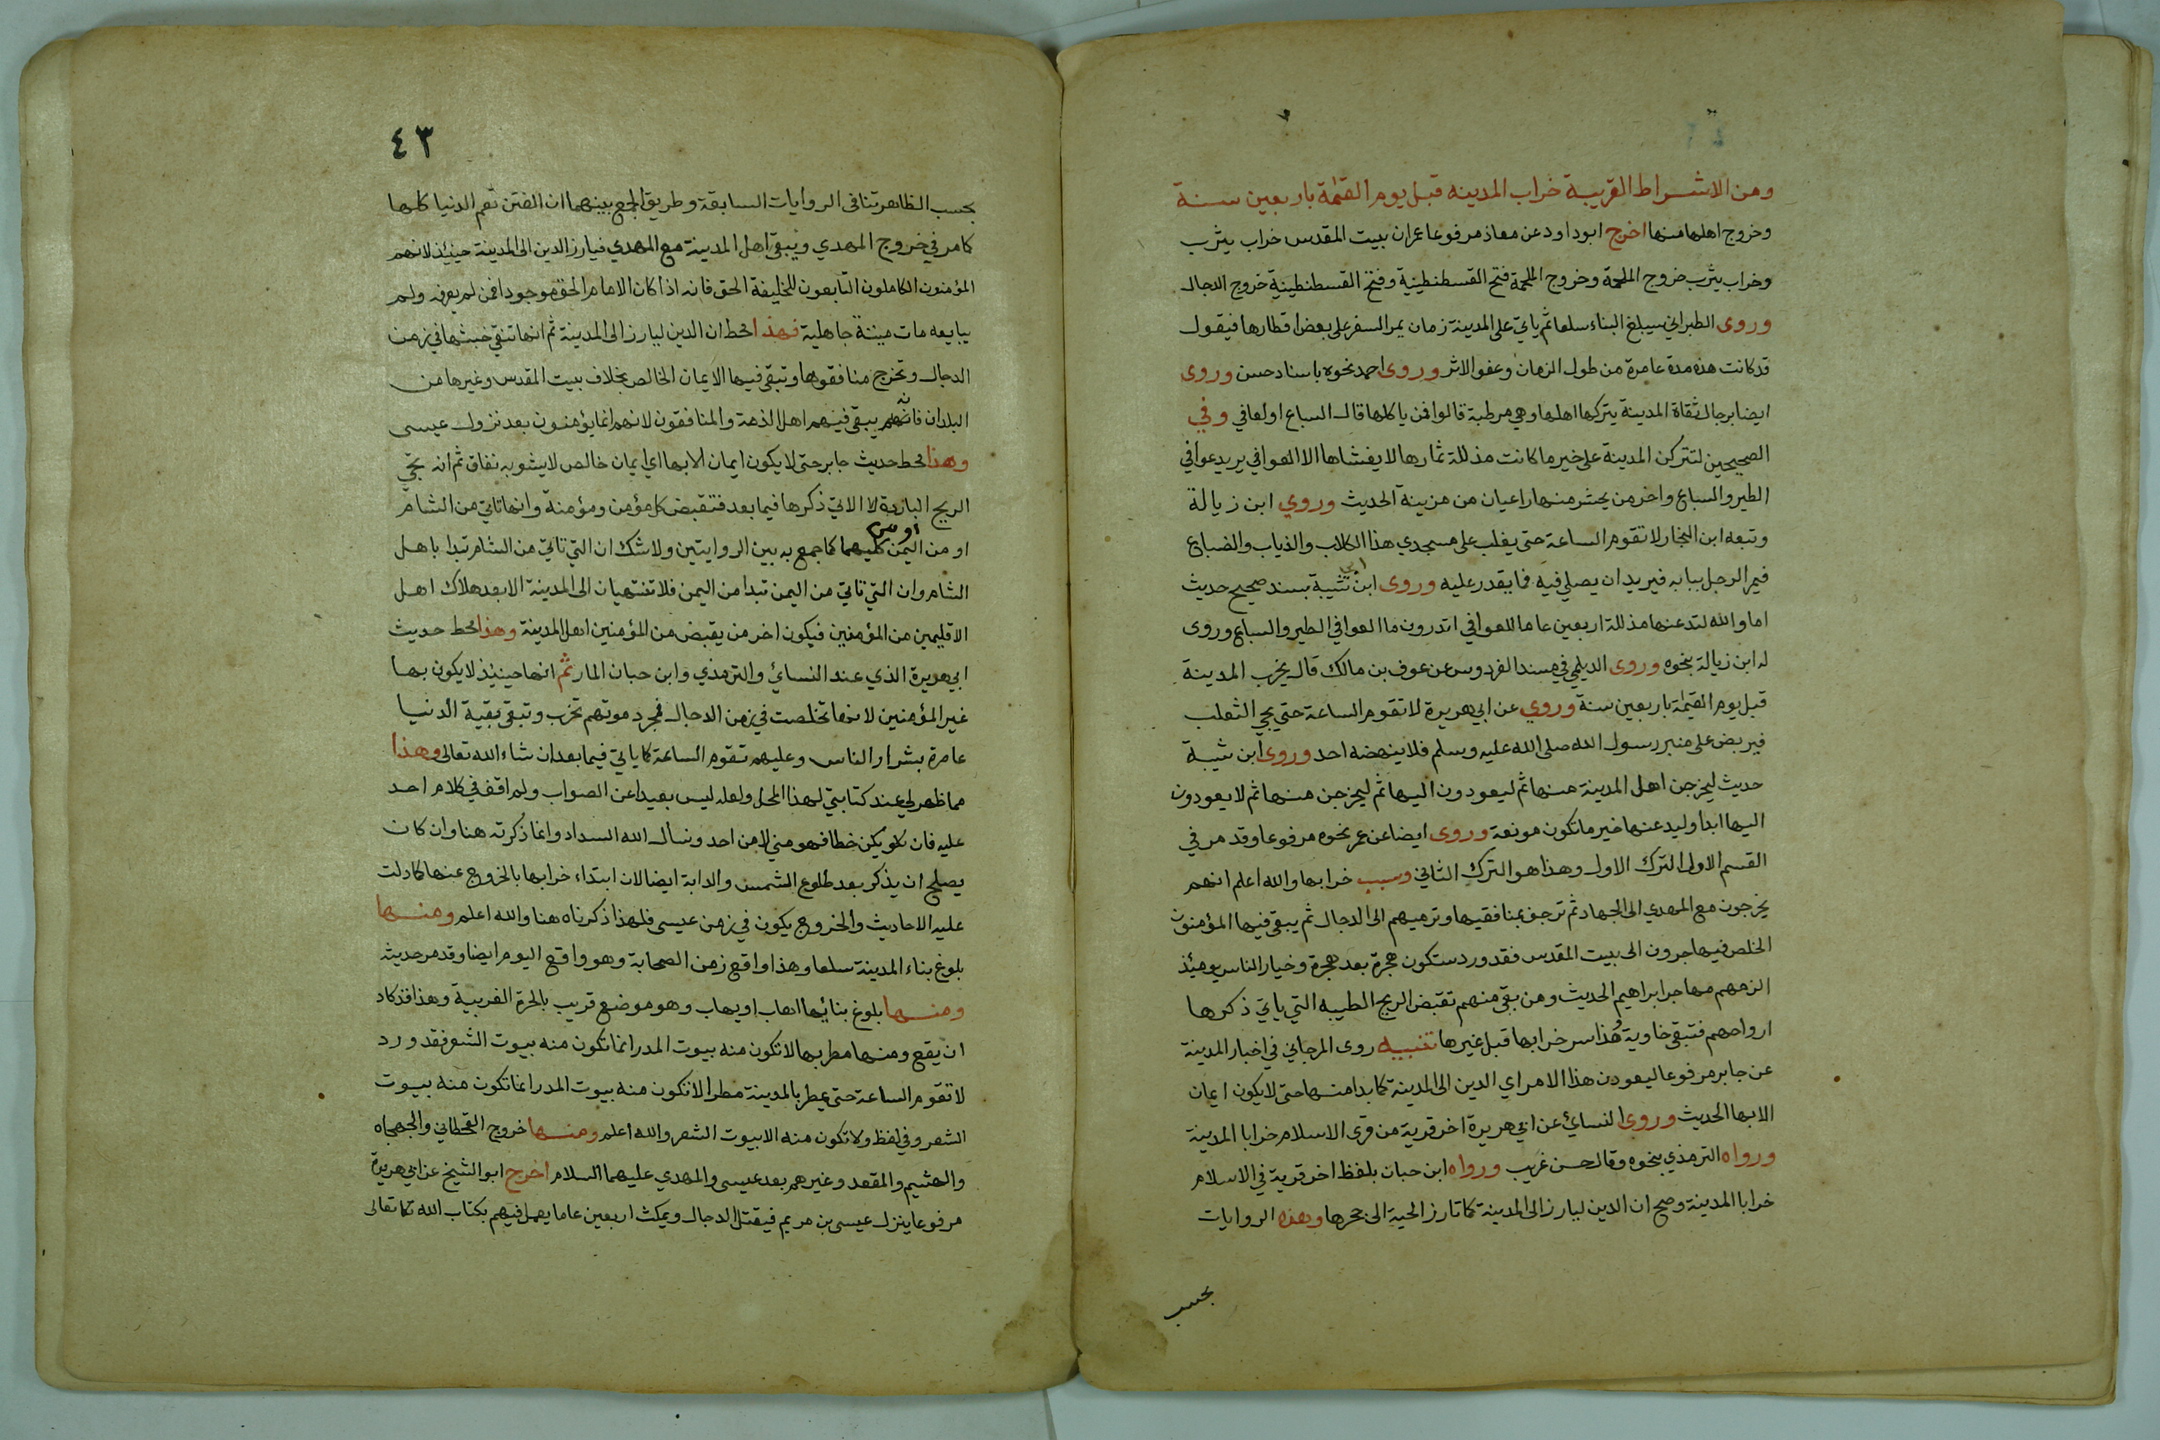 ومن الاشراط القريبة خراب المدينه قبل يوم القيمة باربعين سنة
وخروج اهلها منها اخرج ابوداود عن معاذ مرفوعا عمران بيت المقدس خراب يثرب
وخراب يثرب خروج الملحمة وخروج الملحمة فتح القسطنطينية وفتح القسطنطينية خروج الدجال
وروى الطبراني سيبلغ البناء سلعا ثم ياتي على المدينة زمان يمر السفر على بعض اقطارها فيقول
قد كانت هذه مدة عامرة من طول الزمان وعفو الاثر وروى احمد نحوه باسناد حسن وروى
ايضا برجال ثقاة المدينة يتركها اهلها وهي مرطبة قالوا فمن ياكلها قال السباع او لعافي وفي
الصحيحين لتتركن المدينة على خير ما كانت مذللة ثمارها لا يغشاها الا العوافي يريد عوافي
الطير والسباع واخر من يحشر منها راعيان من مزينة الحديث وروي ابن زبالة
وتبعه ابن النجار لا تقوم الساعة حتى يغلب على مسجدي هذا الكلاب والذياب والضباع
فيمر الرجل ببابه فيريد ان يصلي فيه فما يقدر عليه وروى ابن شيبة بسند صحيح حديث
اما والله لتدعنها مذللة اربعين عاما للعوافي اتدرون ما العوافي الطير والسباع وروى
له ابن زبالة نحوه وروى الديلمي في مسند الفردوس عن عوف بن مالك قال يخرب المدينة
قبل يوم القيمة باربعين سنة وروي عن ابي هريرة لا تقوم الساعة حتى يجي الثعلب
فيربض على منبر رسول الله صلى الله عليه وسلم فلا ينهضه احد وروى ابن شيبة
حديث ليخرجن اهل المدينة منها ثم ليعودون اليها ثم ليخرجن منها ثم لا يعودون
اليها ابدا وليدعنها خير ما تكون مونعة وروى ايضا عن عمر نحوه مرفوعا وقد مر في
القسم الاول الترك الاول وهذا هو الترك الثاني وسبب خرابها والله اعلم انهم
يخرجون مع المهدي الى الجهاد ثم ترجف بمنافقيها وترميهم الى الدجال ثم يبقى فيها المؤمنون
الخلص فيهاجرون الى بيت المقدس فقد ورد ستكون هجرة بعد هجرة وخيار الناس يومئذ
الزمهم مهاجر ابراهيم الحديث ومن بقي منهم تقبض الريح الطيبه التي ياتي ذكرها
ارواحهم فتبقى خاوية وهذا سر خرابها قبل غيرها تنبيه روى المرجاني في اخبار المدينة
عن جابر مرفوعا ليعودن هذا الامر اي الدين الى المدينة كما بدا منها حتى لا يكون ايمان
الا بها الحديث وروى النسائي عن ابي هريرة اخر قرية من قرى الاسلام خرابا المدينة
ورواه الترمذي بنحوه وقال حسن غريب ورواه ابن حبان بلفظ اخر قرية في الاسلام
خرابا المدينة وصح ان الدين ليارز الى المدينة كما تارز الحية الى جحرها وهذه الروايات
بحسب
٤٣
بحسب الظاهر تنافي الروايات السابقة وطريق الجمع بينهما ان الفتن تعم الدنيا كلها
كما مر في خروج المهدي ويبقى اهل المدينة مع المهدي فيارز الدين الى المدينة حينئذ لانهم
المؤمنون الكاملون التابعون للخليفة الحق فانه اذا كان الامام الحق موجودا فمن لم يعرفه ولم
يبايعه مات ميتة جاهلية فهذا محط ان الدين ليارز الى المدينة ثم انها تنفي خبثها في زمن
الدجال وتخرج منافقوها وتبقى فيها الايمان الخالص بخلاف بيت المقدس وغيرها من
البلدان فانه يبقى فيهم اهل الذمة والمنافقون لانهم انما يؤمنون بعد نزول عيسى
وهذا محط حديث جابر حتى لا يكون ايمان الا بها اي ايمان خالص لا يشوبه نفاق ثم انه يجي
الريح الباردة الاتي ذكرها فيما بعد فتقبض كل مؤمن ومؤمنة وانها تاتي من الشام
او من اليمن او من كليهما كما جمع به بين الروايتين ولا شك ان التي تاتي من الشام تبدا باهل
الشام وان التي تاتي من اليمن تبدا من اليمن فلا تنتهيان الى المدينة الا بعد هلاك اهل
الاقليمين من المؤمنين فيكون اخر من يقبض من المؤمنين اهل المدينة وهذا محط حديث
ابي هريرة الذي عند النسائي والترمذي وابن حبان المار ثم انها حينئذ لا يكون بها
غير المؤمنين لانها تخلصت في زمن الدجال فبمجرد موتهم تخرب وتبقى بقية الدنيا
عامرة بشرار الناس وعليهم تقوم الساعة كما ياتي فيما بعد ان شاء الله تعالى وهذا
مما ظهر لي عند كتابتي لهذا المحل ولعله ليس بعيدا عن الصواب ولم اقف في كلام احد
عليه فان يكن خطا فهو مني لا من احد ونسال الله السداد وانما ذكرته هنا وان كان
يصلح ان يذكر بعد طلوع الشمس والدابة ايضا لان ابتداء خرابها بالخروج عنها كما دلت
عليه الاحاديث والخروج يكون في زمن عيسى فلهذا ذكرناه هنا والله اعلم ومنها
بلوغ بناء المدينة سلعا وهذا واقع زمن الصحابة وهو واقع اليوم ايضا وقد مر حديثه
ومنها بلوغ بنائها اهاب او يهاب وهو موضع قريب بالحرة الغربية وهذا قد كاد
ان يقع ومنها مطر بها لا تكون منه بيوت المدر انما تكون منه بيوت الشعر فقد ورد
لا تقوم الساعة حتى يمطر بالمدينة مطر لا تكون منه بيوت المدر انما تكون منه بيوت
الشعر وفي لفظ ولا تكون منه الا بيوت الشعر والله اعلم ومنها خروج القحطاني والجهجاه
والهثيم والمقعد وغيرهم بعد عيسى والمهدي عليهما السلام اخرج ابو الشيخ عن ابي هريرة
مرفوعا ينزل عيسى بن مريم فيقتل الدجال ويمكث اربعين عاما يعمل فيهم بكتاب الله تعالى